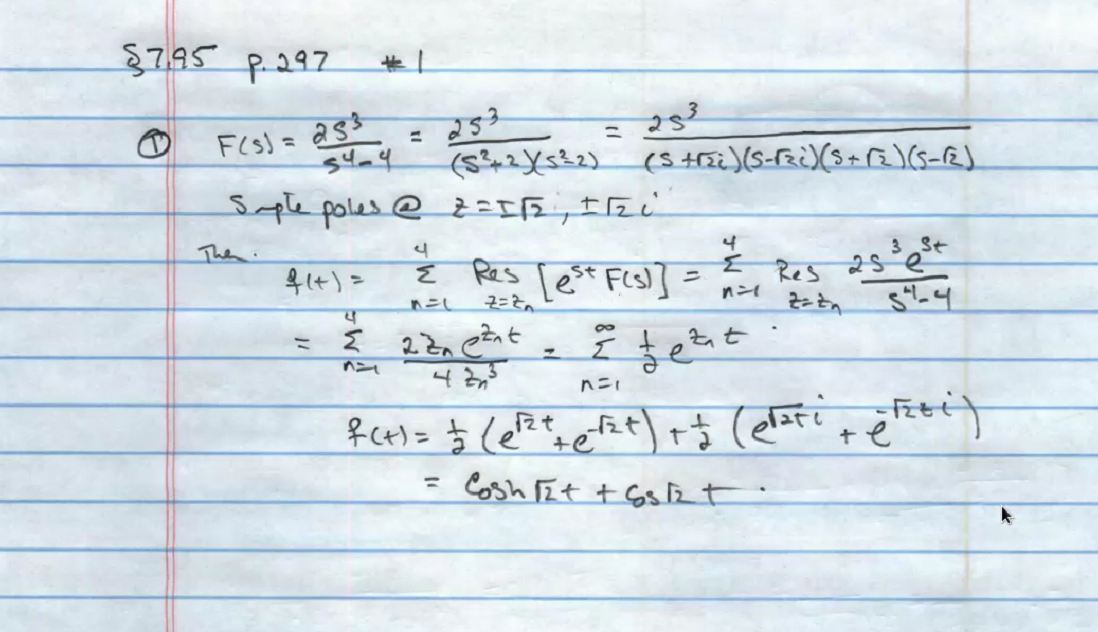 §7.95 p. 297 #1
① F(s) = 2s³/(s⁴-4) = 2s³/((s²+2)(s²-2)) = 2s³/((s+√2i)(s-√2i)(s+√2)(s-√2))
Simple poles @ z = ±√2, ±√2 i
Then.
f(t) = Σ_{n=1}^{4} Res_{z=z_n} [e^{st} F(s)] = Σ_{n=1}^{4} Res_{z=z_n} 2s³e^{st}/(s⁴-4)
= Σ_{n=1}^{4} 2z_n e^{z_n t}/(4z_n³) = Σ_{n=1}^{∞} ½ e^{z_n t}.
f(t) = ½ (e^{√2t} + e^{-√2t}) + ½ (e^{√2ti} + e^{-√2ti})
= Cosh √2t + Cos √2 t.